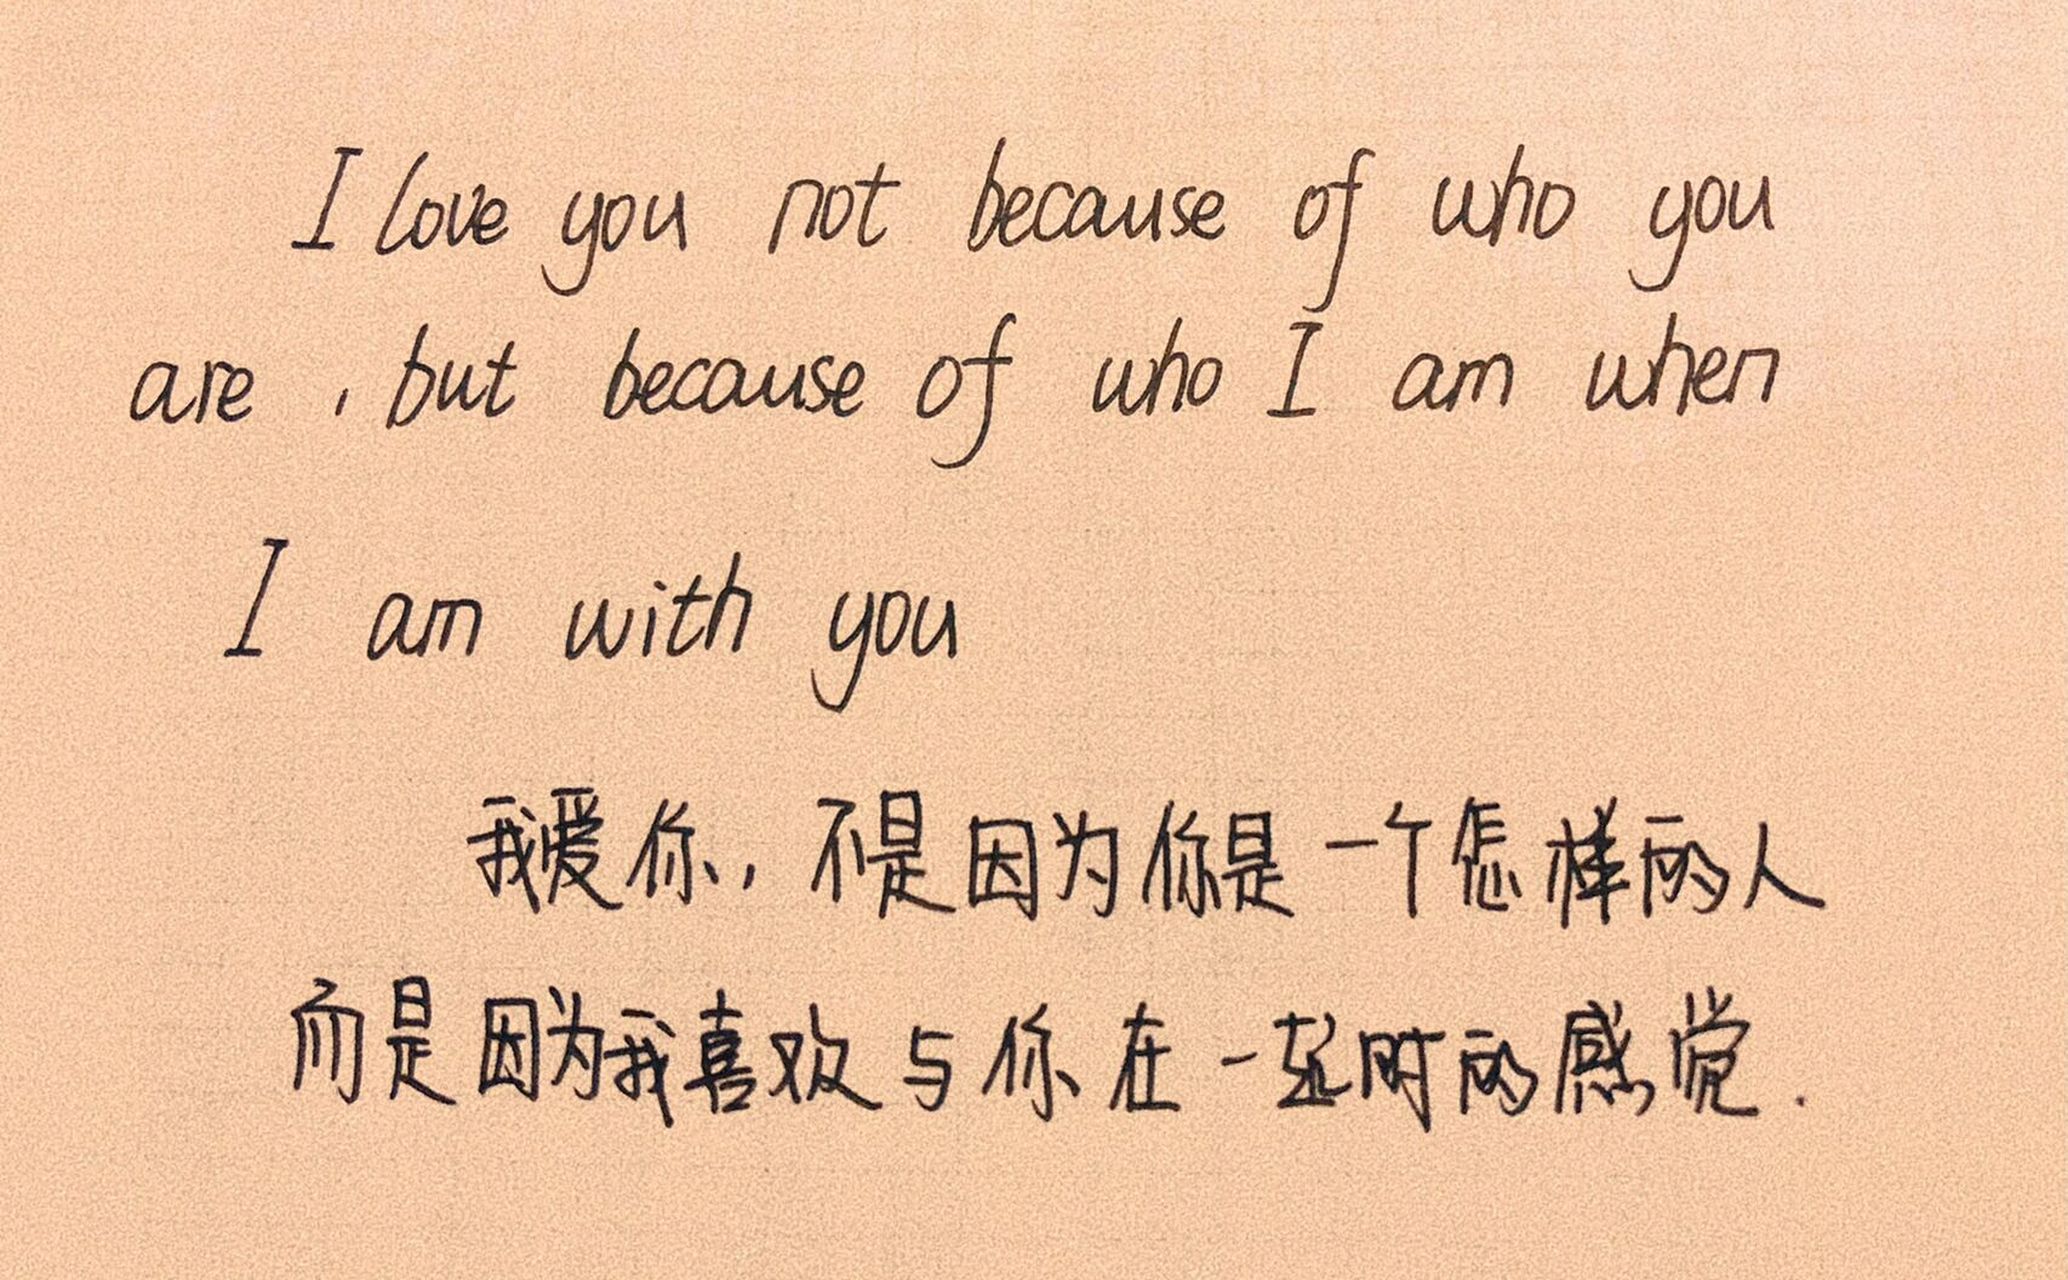 I love you not because of who you
are , but because of who I am when
I am with you
我爱你，不是因为你是一个怎样的人
而是因为我喜欢与你在一起时的感觉.